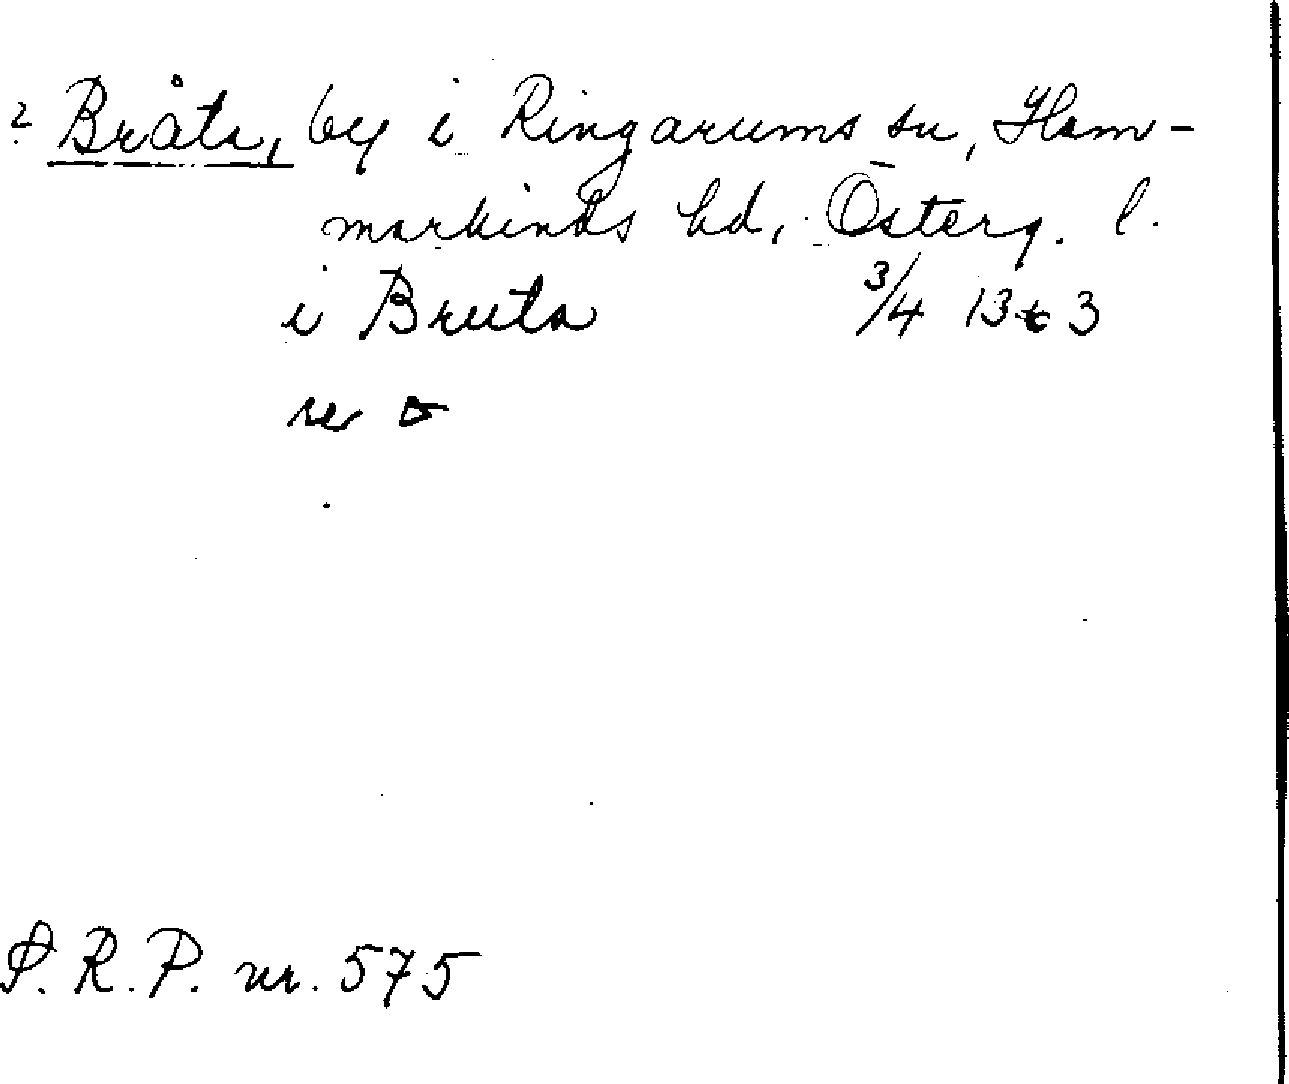 ? Bråta, by i Ringarums sn, Ham-
markinds hd, Österg. l.
i Bruta 3/4 1363
S.R.P. nr. 575